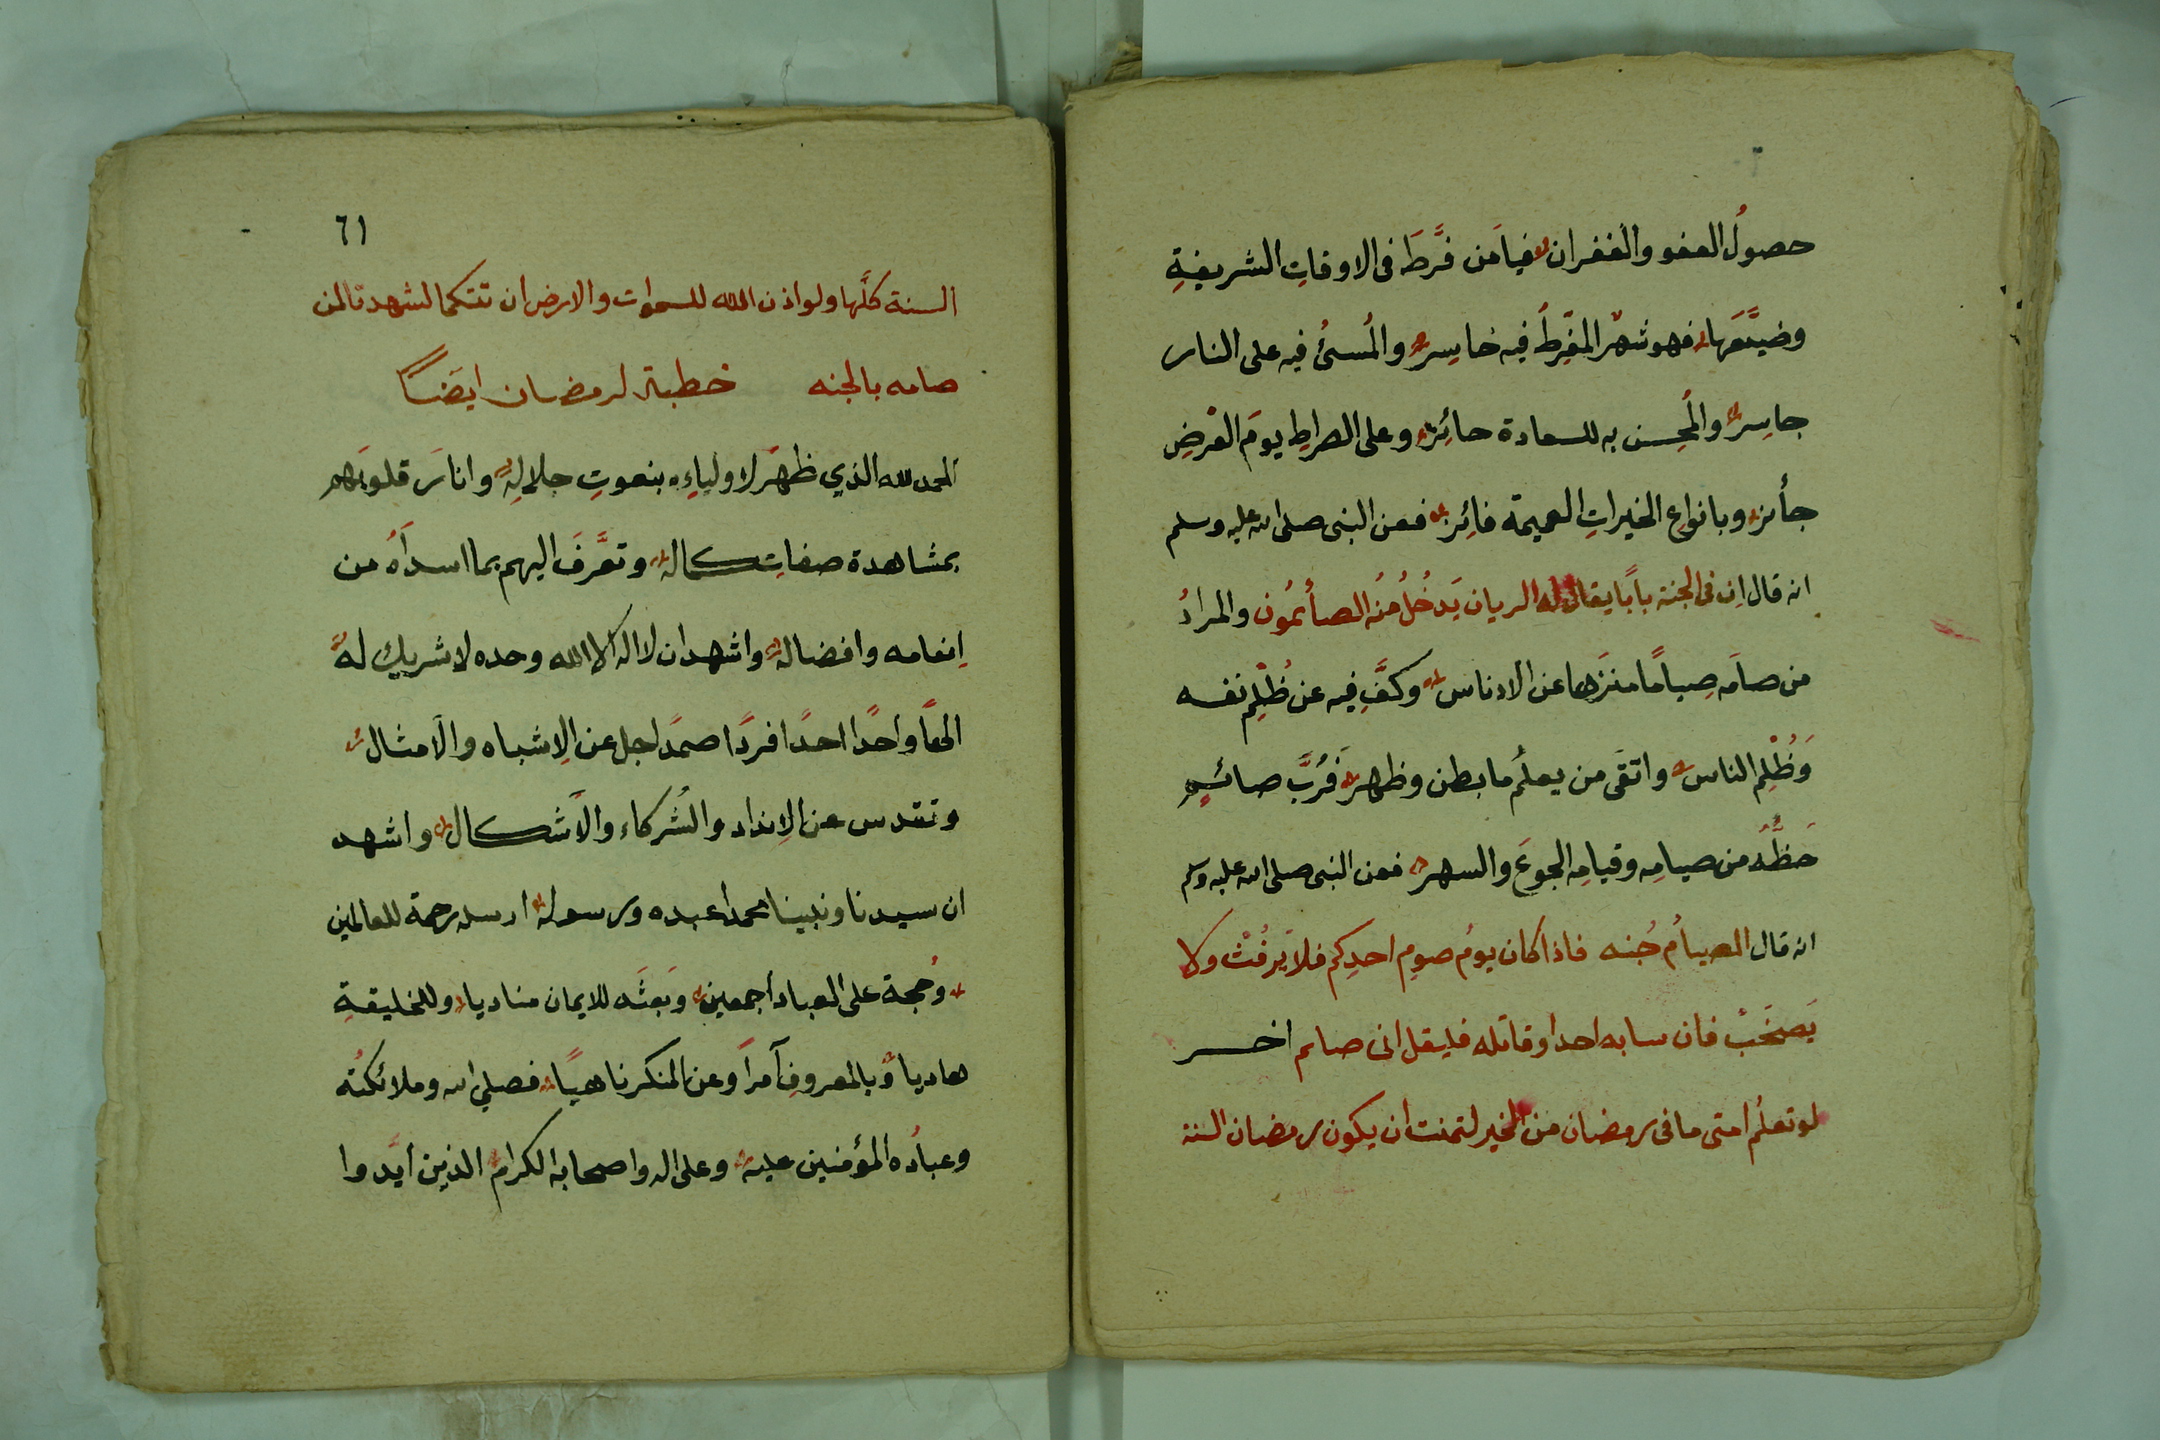 حصولُ العفو والغفران فيامَن فَرَّطَ فى الاوقاتِ الشريفةِ
وضيَّعَها فهو شهرٌ المفَرِّطُ فيه خاسِر والمُسئُ فيه على النار
جاسِر والمُحِسن به للسعادة حائِز وعلى الصراطِ يومَ العَرْضِ
جأئز وبانواعِ الخيراتِ العميمة فائِز فعن النبى صلى الله عليه وسلم
انه قال اِن فى الجنة بابًا يقال له الريان يَدخُلُ منُه الصأئمُون والمرادُ
من صامَه صِيامًا منَزها عن الادناس وكَفَّ فيه عن ظُلِم نفسه
وَظُلْمِ الناس واتقَى من يعلمُ ما بطن وظهر فَرُبَّ صائمٍ
حَظُّهُ من صيامِه وقيامِه الجوعَ والسهر فعن النبى صلى الله عليه وسلم
انه قال الصيامُ جُنه فاذا كان يومُ صومِ احدِكم فلا يَرفُثْ ولا
يَصخَبْ فان سابه احد او قاتله فليقل انى صايم اخر
لو تعلمُ امتى ما فى رمضان من الخير لتمنت ان يكون رمضان السنة
٦١
السنة كلَّها ولو اذن الله للسموات والارض ان تتكما لشهدتا لمن
صامه بالجنه خطبة لرمضان ايضًا
الحمد لله الذي ظهرَ لاولياءِه بنعوتِ جلالِهِ وانارَ قلوبَهم
بمشاهدة صفاتِ كماله وتعَرَّفَ اليهم بما اسدأهُ من
اِنعامه وافضاله واشهد ان لا اله الا الله وحده لا شريك لهُ
الهًا واحدًا احدًا فردًا صمدًا جل عن الاِشباه والاَمثال
وتقدس عن الاِنداد والشُركاء والاَشكال واشهد
ان سيدنا ونبينا محمداً عبده ورسوله ارسله رحمة للعالمين
وُحجة على العباد اجمعين وبَعثَه للايمان مناديا وللخليقةِ
هاديا وبالمعروفِ آمراً وعن المنكر ناهيًا فصلي الله وملائكتُه
وعبادُه المؤمنين عليه وعلى اله واصحابه الكرام الذين ايَّدوا